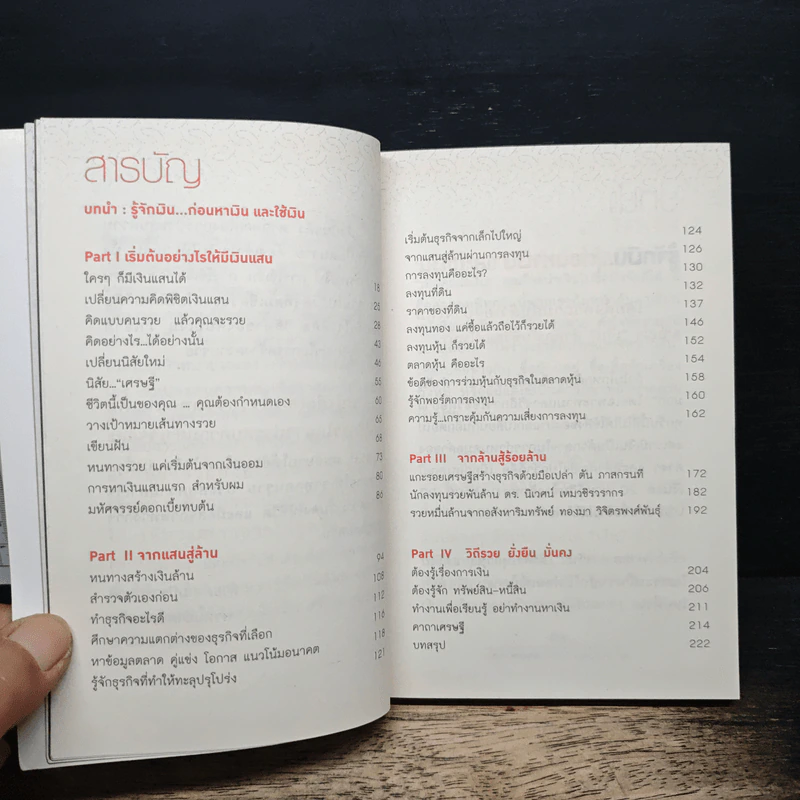 สารบัญ
บทนำ : รู้จักเงิน...ก่อนหาเงิน และใช้เงิน
Part I เริ่มต้นอย่างไรให้มีเงินแสน
ใครๆ ก็มีเงินแสนได้ 18
เปลี่ยนความคิดพิชิตเงินแสน 25
คิดแบบคนรวย แล้วคุณจะรวย 28
คิดอย่างไร...ได้อย่างนั้น 43
เปลี่ยนนิสัยใหม่ 46
นิสัย..."เศรษฐี" 55
ชีวิตนี้เป็นของคุณ ... คุณต้องกำหนดเอง 60
วางเป้าหมายเส้นทางรวย 65
เขียนฝัน 68
หนทางรวย แค่เริ่มต้นจากเงินออม 73
การหาเงินแสนแรก สำหรับผม 80
มหัศจรรย์ดอกเบี้ยทบต้น 86
Part II จากแสนสู่ล้าน
หนทางสร้างเงินล้าน 94
สำรวจตัวเองก่อน 108
ทำธุรกิจอะไรดี 112
ศึกษาความแตกต่างของธุรกิจที่เลือก 116
หาข้อมูลตลาด คู่แข่ง โอกาส แนวโน้มอนาคต 118
รู้จักธุรกิจที่ทำให้ทะลุปรุโปร่ง 121
เริ่มต้นธุรกิจจากเล็กไปใหญ่ 124
จากแสนสู่ล้านผ่านการลงทุน 126
การลงทุนคืออะไร? 130
ลงทุนที่ดิน 132
ราคาของที่ดิน 137
ลงทุนทอง แค่ซื้อแล้วถือไว้ก็รวยได้ 146
ลงทุนหุ้น ก็รวยได้ 152
ตลาดหุ้น คืออะไร 154
ข้อดีของการร่วมหุ้นกับธุรกิจในตลาดหุ้น 158
รู้จักพอร์ตการลงทุน 160
ความรู้...เกราะคุ้มกันความเสี่ยงการลงทุน 162
Part III จากล้านสู่ร้อยล้าน
แกะรอยเศรษฐีสร้างธุรกิจด้วยมือเปล่า ตัน ภาสกรนที 172
นักลงทุนรวยพันล้าน ดร. นิเวศน์ เหมวชิรวรากร 182
รวยหมื่นล้านจากอสังหาริมทรัพย์ ทองมา วิจิตรพงศ์พันธุ์ 192
Part IV วิถีรวย ยั่งยืน มั่นคง
ต้องรู้เรื่องการเงิน 204
ต้องรู้จัก ทรัพย์สิน-หนี้สิน 206
ทำงานเพื่อเรียนรู้ อย่าทำงานหาเงิน 211
คาถาเศรษฐี 214
บทสรุป 222